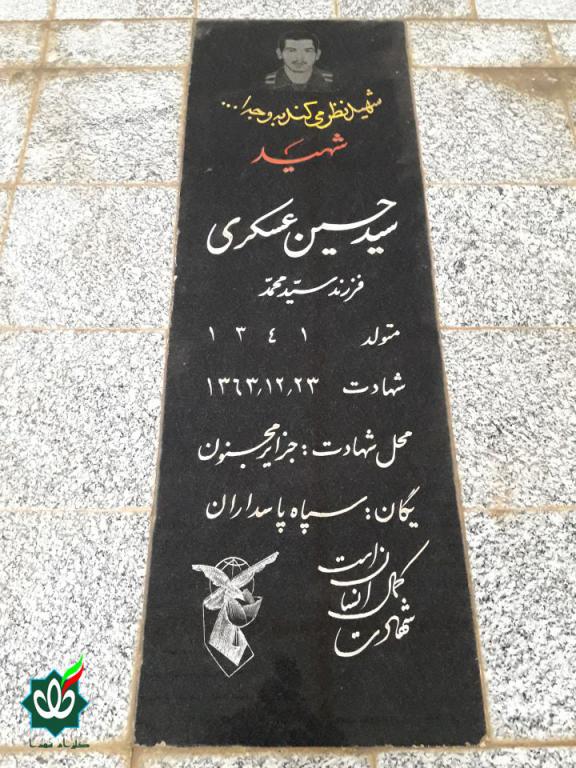 شهید نظر می کند به وجه ا...
شهید
سید حسین عسکری
فرزند سیّد محمّد
متولد ۱۳٤۱
شهادت ۱۳٦۳,۱۲,۲۳
محل شهادت : جزایر مجنون
یگان : سپاه پاسداران
شهادت
کمال انسان است
گلزار شهدا